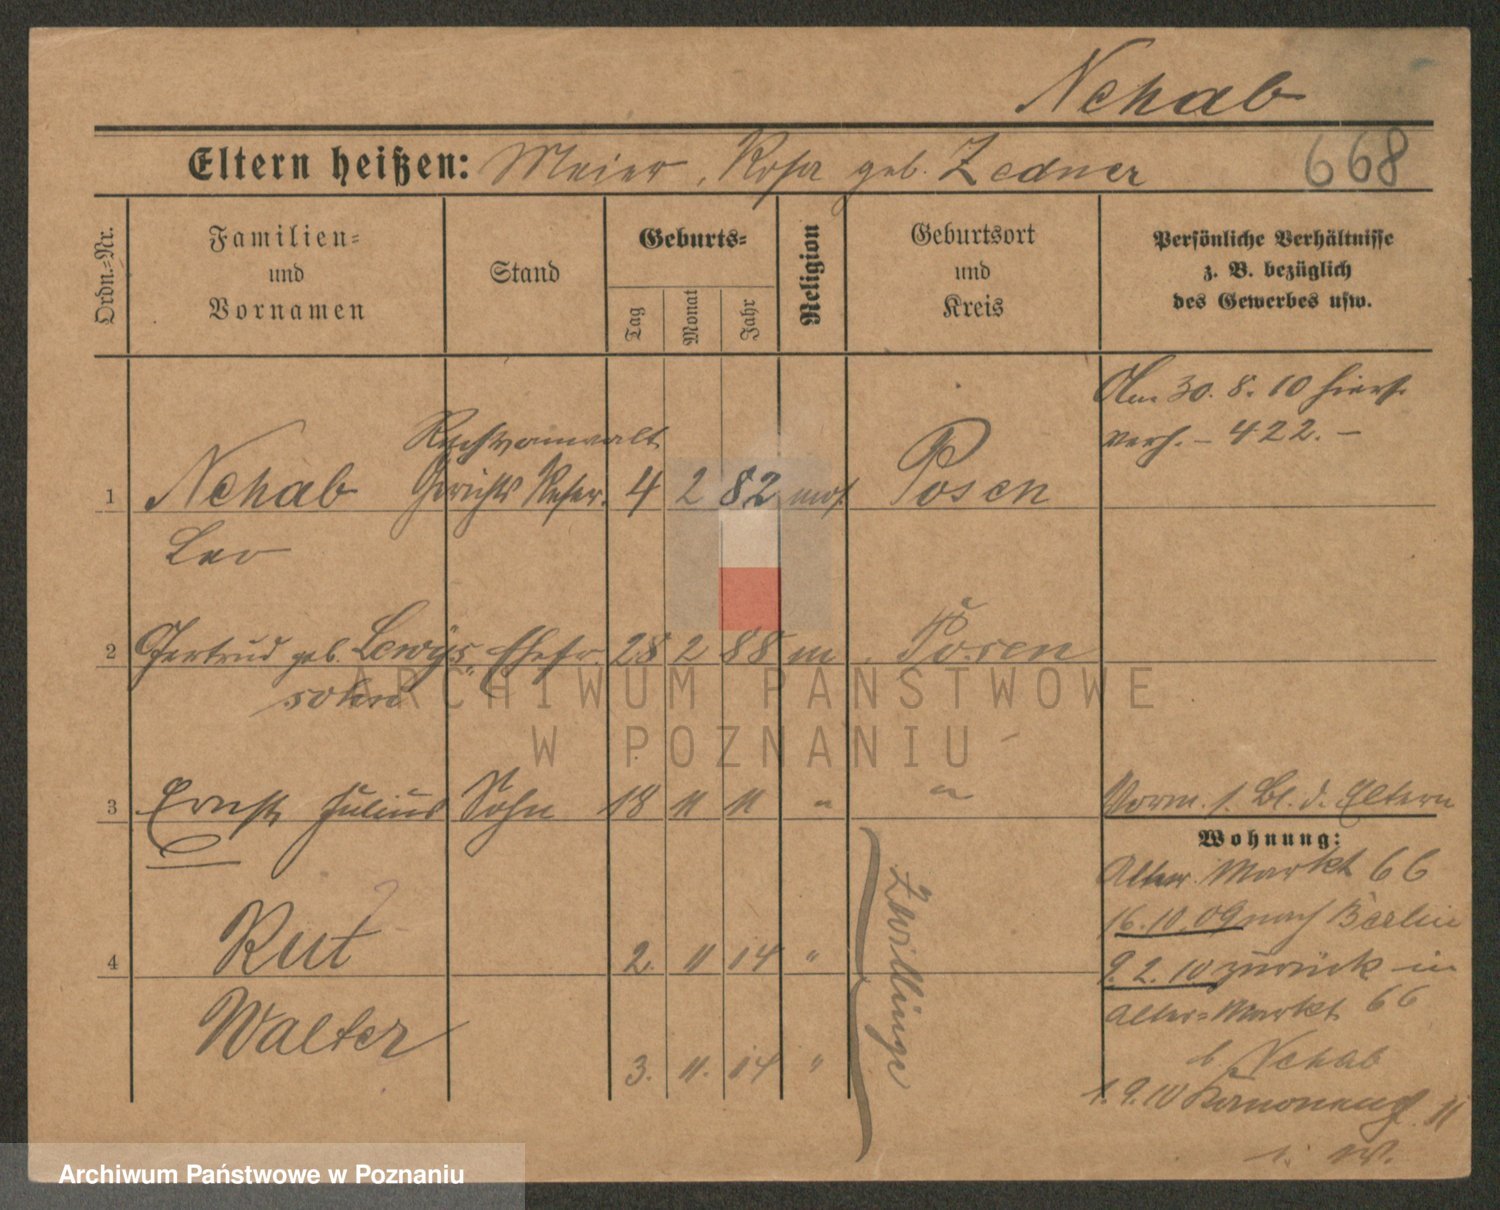 Nehab
Eltern heißen: Meier, Rosa geb. Zedner 668
Ordn.=Nr.
Familien=
und
Vornamen
Stand
Geburts=
Tag
Monat
Jahr
Religion
Geburtsort
und
Kreis
Persönliche Verhältnisse
z. B. bezüglich
des Gewerbes usw.
Am 30. 8. 10 hiers.
verh. – 422. –
Rechtsanwalt
1 Nehab Gerichts Refer. 4 2 82 mos. Posen
Leo
2 Gertrud geb. Lewy Ehefr. 28 2 88 m. Posen
sohn
3 Ernst Julius Sohn 18 11 11 " " Vorm. 1. Bl. d. Eltern
Wohnung:
Alter Markt 66
16.10.09 nach Berlin
9. 2. 10 zurück in
Alter=Markt 66
b. Nehab
1. 9. 10 Kanoneng. 11
4 Rut 2. 11 14 "
Walter 3. 11. 14 "
Zwillinge
ARCHIWUM PAŃSTWOWE
W POZNANIU
Archiwum Państwowe w Poznaniu